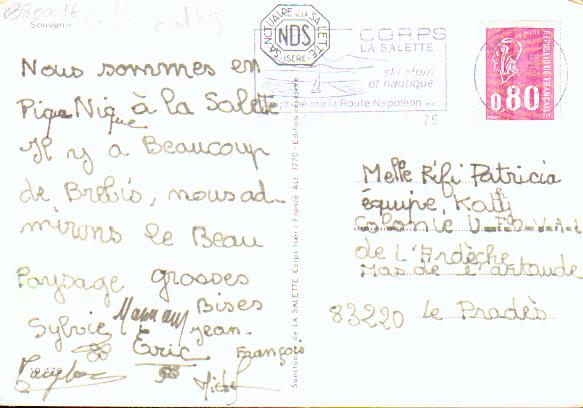 Souvenir
Nous sommes en
Pique Nique à la Salette
Il y a Beaucoup
de Brebis, nous ad-
mirons le Beau
Paysage grosses
Bises
Sylvie Maman Jean-
François
Éric
Michel
SANCTUAIRE DE LA SALETTE
NDS
ISÈRE
CORPS
LA SALETTE
ski alpin
et nautique
sur la Route Napoléon
75
REPUBLIQUE FRANÇAISE
0,80
Melle Rifi Patricia
équipe, Katty
Colonie
de L'Ardèche
Mas de l'artaude
83220 Le Pradès
Sanctuaire de LA SALETTE Corps Isère - France Alt. 1770 - Edition